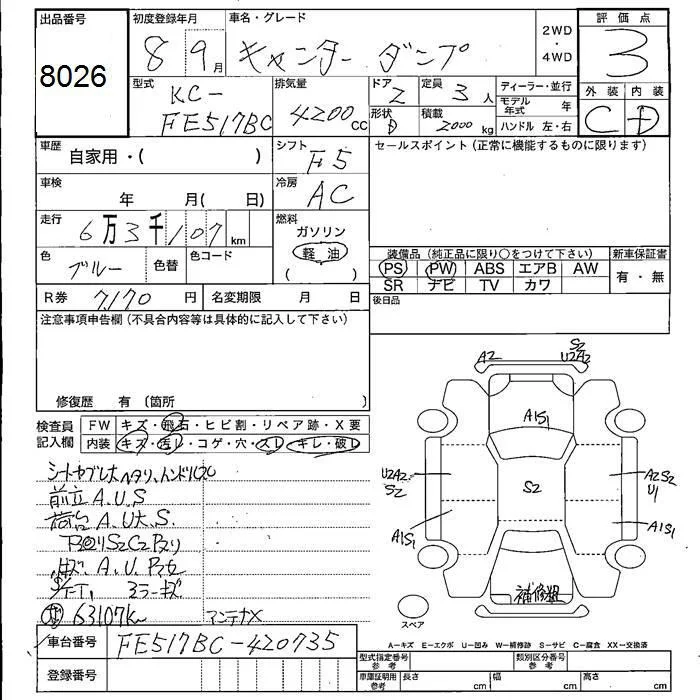 出品番号 初度登録年月 車名・グレード 2WD・4WD 評価点
8026 8 9月 キャンター ダンプ 3
型式 KC-FE517BC 排気量 4200cc ドア 2 定員 3人 ディーラー・並行 外装 内装
形状 D 積載 2000kg モデル年式 年 C D
ハンドル 左・右
車歴 自家用・( ) シフト F5 セールスポイント(正常に機能するものに限ります)
車検 年 月( 日) 冷房 AC
走行 6万3千107km 燃料 ガソリン
軽油
( )
色 ブルー 色替 色コード
装備品(純正品に限り○をつけて下さい) 新車保証書
PS PW ABS エアB AW 有・無
SR ナビ TV カワ
R券 7,170円 名変期限 月 日 後日品
注意事項申告欄(不具合内容等は具体的に記入して下さい)
修復歴 有(箇所 )
検査員記入欄 FW キズ・飛石・ヒビ割・リペア跡・X要
内装 キズ・汚し・コゲ・穴・スレ・キレ・破し
前立 A.U.S
荷台 A.U大.S.
下回りS2C2
A.U.
ミラーキズ
63107km アンテナX
車台番号 FE517BC-420735
登録番号
A2 S2
U2A2
A1S1
U2A2
S2
S2
A2S2
U1
A1S1
A1S1
補修粗
スペア
A−キズ E−エクボ U−凹み W−補修跡 S−サビ C−腐食 XX−交換済
型式指定番号 参考 類別区分番号 参考
車庫証明用 参考 長さ cm 幅 cm 高さ cm